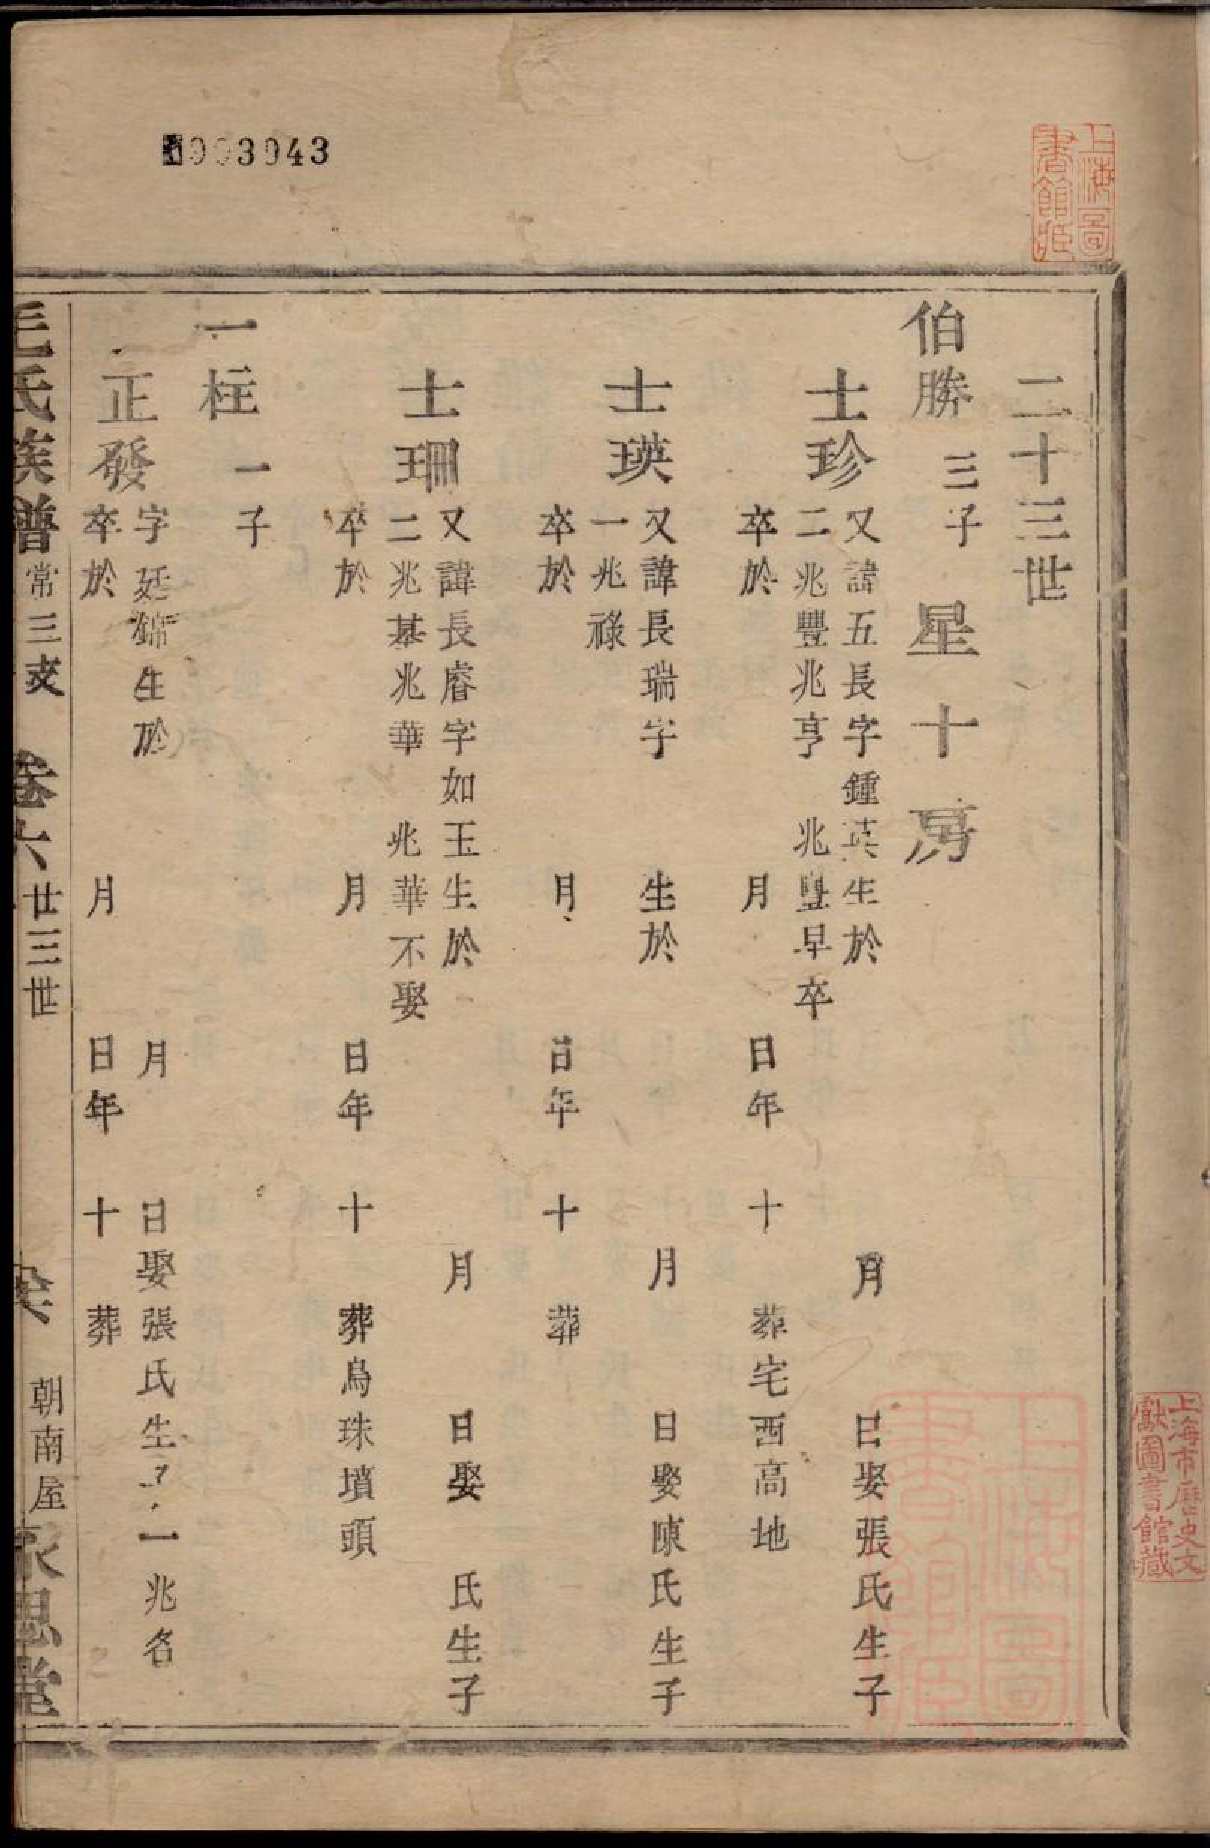 003943
上海圖
書館藏
二十三世
伯勝 三子 星十房
士珍 又諱五長字鍾英生於 月 日娶張氏生子
二兆豐兆亨 兆豐早卒
卒於 月 日年 十 葬宅西高地
士瑛 又諱長瑞字 生於 月 日娶陳氏生子
一兆祿
卒於 月 日年 十 葬
士珊 又諱長睿字如玉生於 月 日娶 氏生子
二兆基兆華 兆華不娶
卒於 月 日年 十 葬烏珠墳頭
一柱 一子
正發 字廷錦生於 月 日娶張氏生子一兆名
卒於 月 日年 十 葬
毛氏族譜 常三支 卷六 世三世 朝南屋 永思堂
上海圖
書館藏
上海市歷史文
獻圖書館藏